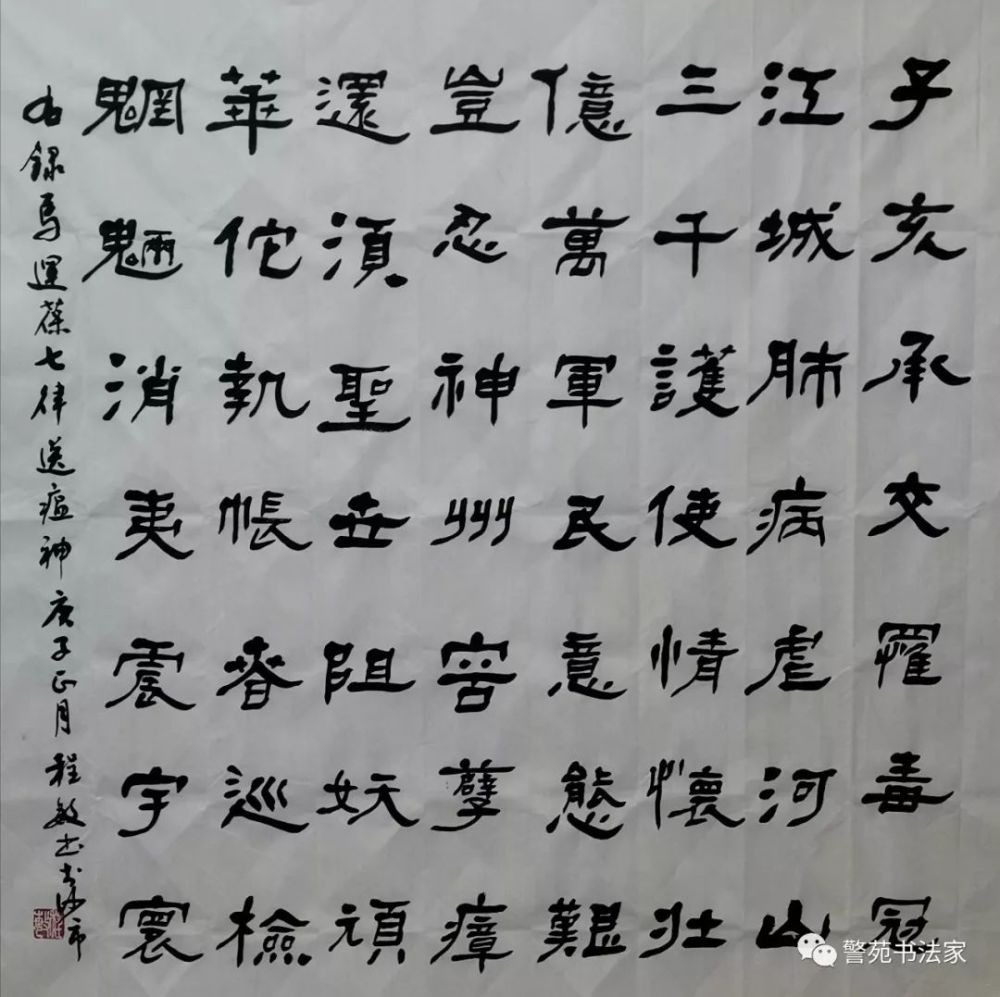 子亥承交罹毒冠
江城肺病虐河山
三千護使情懷壮
億萬軍民意態艱
豈忍神州容孽瘴
還須聖世阻妖頑
華佗執帳春巡檢
魍魎消夷震宇寰
右録馬運葆七律送瘟神庚子正月程敏书於沙市
警苑书法家